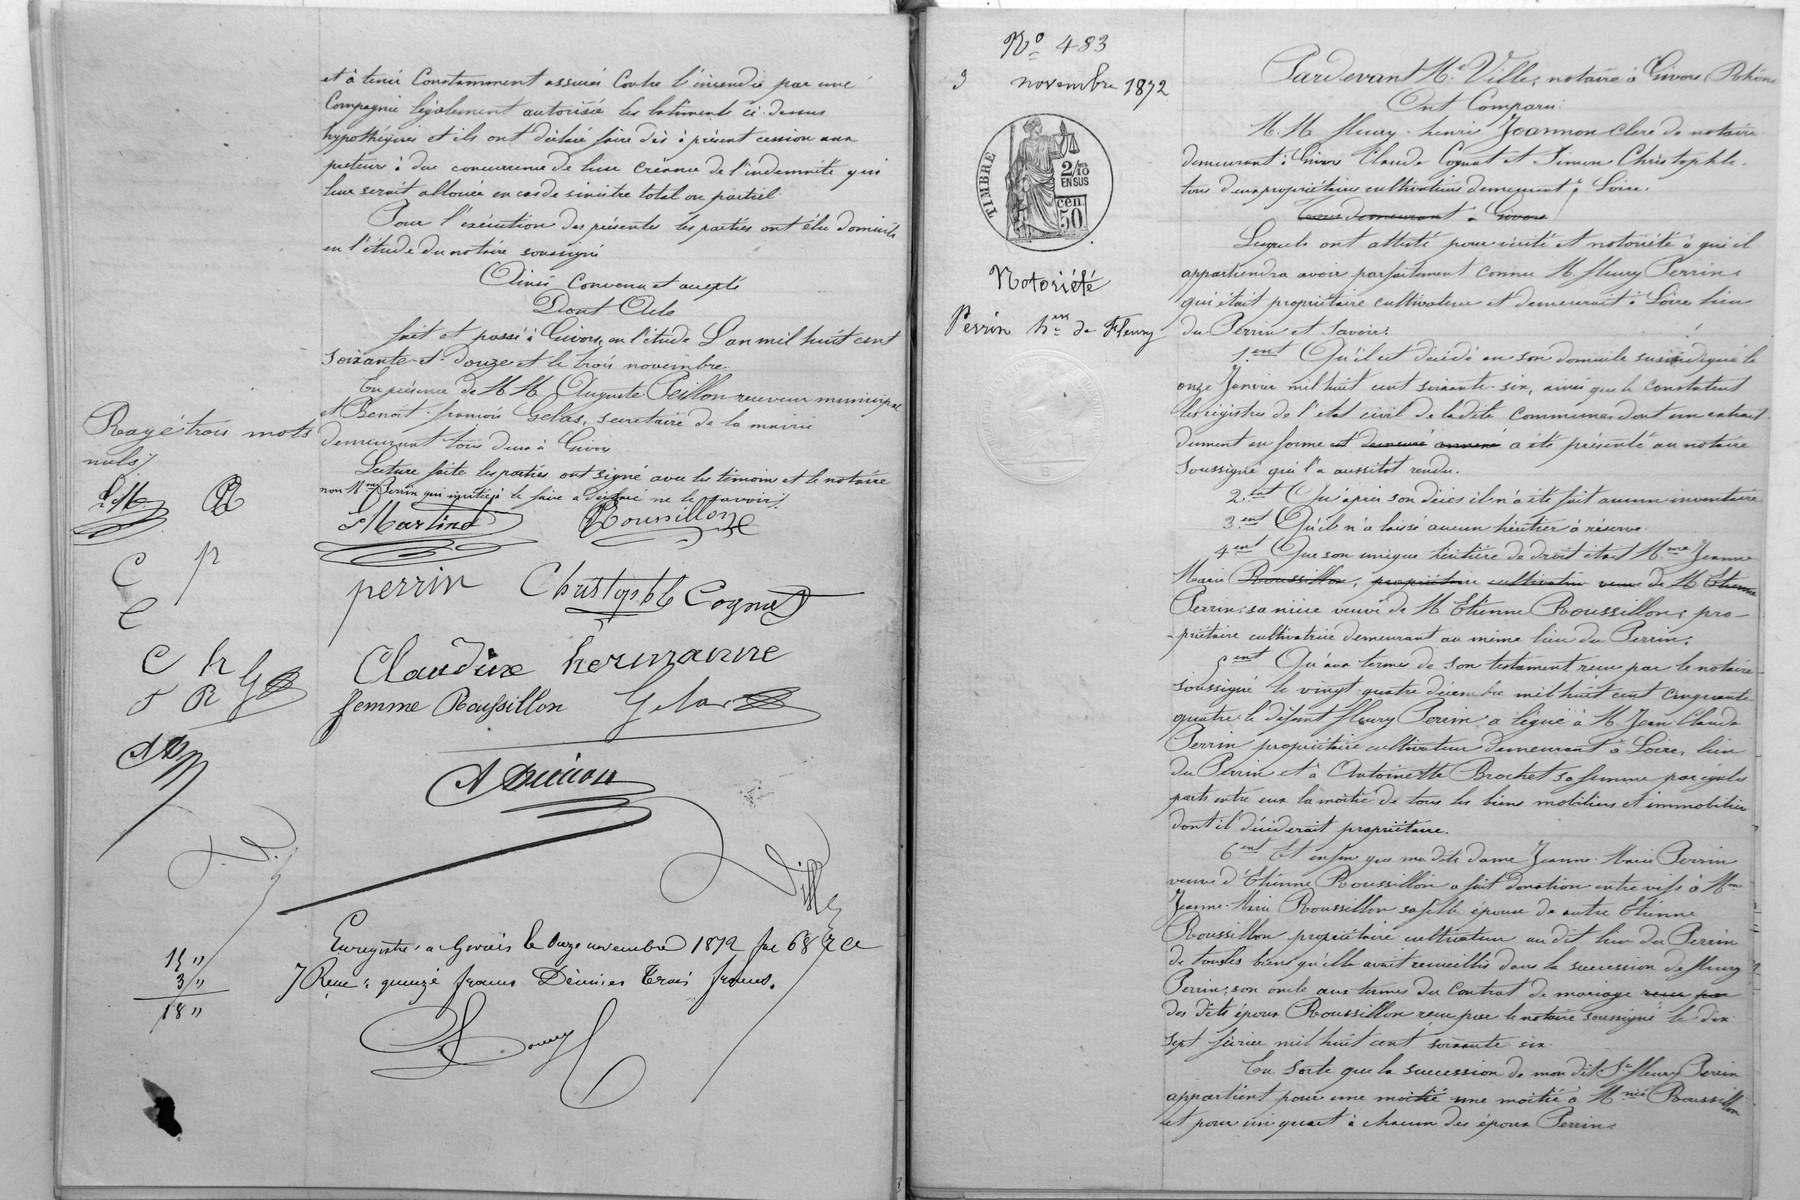 et à tenir constamment assurés contre l'incendie par une
Compagnie légalement autorisée les bâtiments ci-dessus
hypothéqués et ils ont déclaré faire dès à présent cession aux
preteurs à due concurrence de leur créance de l'indemnité qui
leur serait allouée en cas de sinistre total ou partiel.
Pour l'exécution des présentes les parties ont élu domicile
en l'étude du notaire soussigné
Ainsi convenu et accepté
Dont Acte
fait et passé à Givors, en l'étude L'an mil huit cent
soixante-et-douze et le trois novembre.
En présence de M.M. Auguste Peillon receveur municipal
et Benoit-françois Gelas, secretaire de la mairie
demeurant tous deux à Givors
Lecture faite les parties ont signé avec les témoins et le notaire
non Mme Perrin qui de le faire a déclaré ne le savoir.
Rayé trois mots
nuls
LM R
L Martinot Roussillon
C p
perrin Christophle Cognat
C
C h G
Claudine hermanne
F R
femme Roussillon Gelas
Ville
Enregistré à Givors le onze novembre 1872 fo 68 r c
Reçu quinze francs Décimes trois francs.
15 "
3 "
18 "
No 483
3 novembre 1872
TIMBRE
2/10
EN SUS
50 cen
Notoriété
Perrin hers de Fleury
Pardevant Me Ville, notaire à Givors, Rhône
Ont Comparu
M.M. fleury-henri Joannon clerc de notaire
demeurant à Givors Claude Cognat et Simon Christophle
tous deux propriétaires cultivateurs demeurant à Loire.
tous demeurant à Givors
Lesquels ont attesté pour vérité et notoriété à qui il
appartiendra avoir parfaitement connu M. fleury Perrin
qui était propriétaire cultivateur et demeurait à Loire lieu
du Perrin et savoir:
1ent Qu'il est décédé en son domicile susindiqué le
onze Janvier mil huit cent soixante-six, ainsi que le constatent
les registres de l'état civil de ladite commune, dont un extrait
dument en forme et demeuré annexé a été présenté au notaire
soussigné qui l'a aussitot rendu.
2ent Qu'après son décès il n'a été fait aucun inventaire
3ent Qu'il n'a laissé aucun héritier à réserve
4ent Que son unique héritière de droit était Mme Jeanne
Marie Roussillon, propriétaire cultivatrice veuve de M Etienne
Perrin, sa nièce veuve de M Etienne Roussillon, pro-
-priétaire cultivatrice demeurant au même lieu du Perrin.
5ent Qu'aux termes de son testament reçu par le notaire
soussigné le vingt-quatre décembre mil huit cent cinquante
quatre le défunt fleury Perrin a légué à M. Jean Claude
Perrin propriétaire cultivateur demeurant à Loire, lieu
du Perrin et à Antoinette Brochet sa femme par égales
parts entre eux la moitié de tous les biens mobiliers et immobiliers
dont il décéderait propriétaire.
6ent Et enfin que madite dame Jeanne-Marie Perrin
veuve d'Etienne Roussillon a fait donation entre vifs à Mme
Jeanne-Marie Roussillon sa fille épouse de autre Etienne
Roussillon propriétaire cultivateur au dit lieu du Perrin
de tous les biens qu'elle avait recueillis dans la succession de fleury
Perrin, son oncle aux termes du contrat de mariage reçu par
des dits époux Roussillon reçu par le notaire soussigné le dix
sept février mil huit cent soixante six
En sorte que la succession de mon dit Sr fleury Perrin
appartient pour une moitié une moitié à Mme Roussillon
et pour un quart à chacun des époux Perrin.